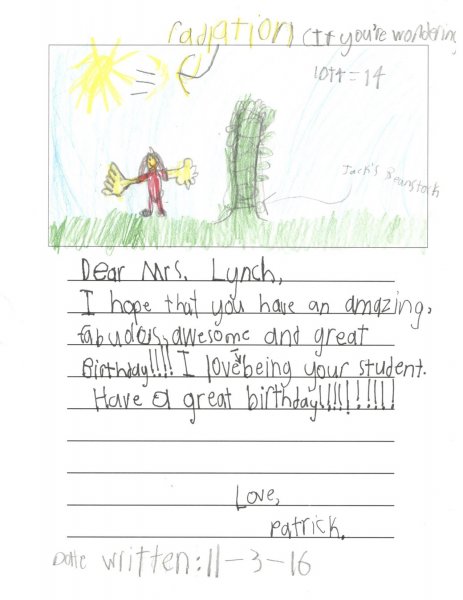 radiation (If you're wondering
10+4=14
Jack's Beanstock
Dear Mrs. Lynch,
I hope that you have an amazing,
fabudois, awesome and great
Birthday!!!! I love being your student.
Have a great birthday!!!!!!!!!!
Love,
Patrick.
Date written: 11-3-16